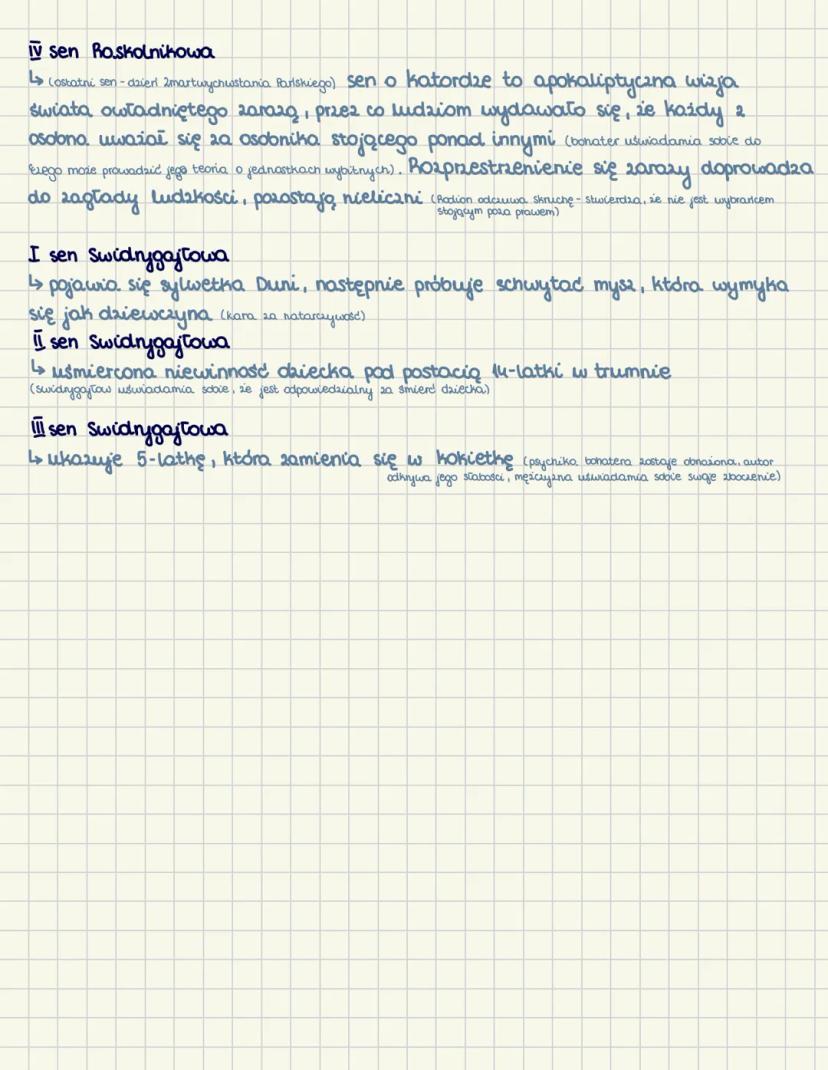 IV sen Raskolnikowa
↳ (ostatni sen - dzień Zmartwychwstania Pańskiego) sen o katordze to apokaliptyczna wizja
świata owładniętego zarazą, przez co ludziom wydawało się, że każdy z
osobna uważał się za osobnika stojącego ponad innymi (bohater uświadamia sobie do
czego może prowadzić jego teoria o jednostkach wybitnych). Rozprzestrzenienie się zarazy doprowadza
do zagłady ludzkości, pozostają nieliczni (Rodion odczuwa skruchę - stwierdza, że nie jest wybrańcem
stojącym poza prawem)
I sen Swidrygajłowa
↳ pojawia się sylwetka Duni, następnie próbuje schwytać mysz, która wymyka
się jak dziewczyna (kara za natarczywość)
II sen Swidrygajłowa
↳ uśmiercona niewinność dziecka pod postacią 14-latki w trumnie
(Swidrygajłow uświadamia sobie, że jest odpowiedzialny za śmierć dziecka)
III sen Swidrygajłowa
↳ ukazuje 5-latkę, która zamienia się w kokietkę (psychika bohatera zostaje obnażona, autor
odkrywa jego słabości, mężczyzna uświadamia sobie swoje zboczenie)